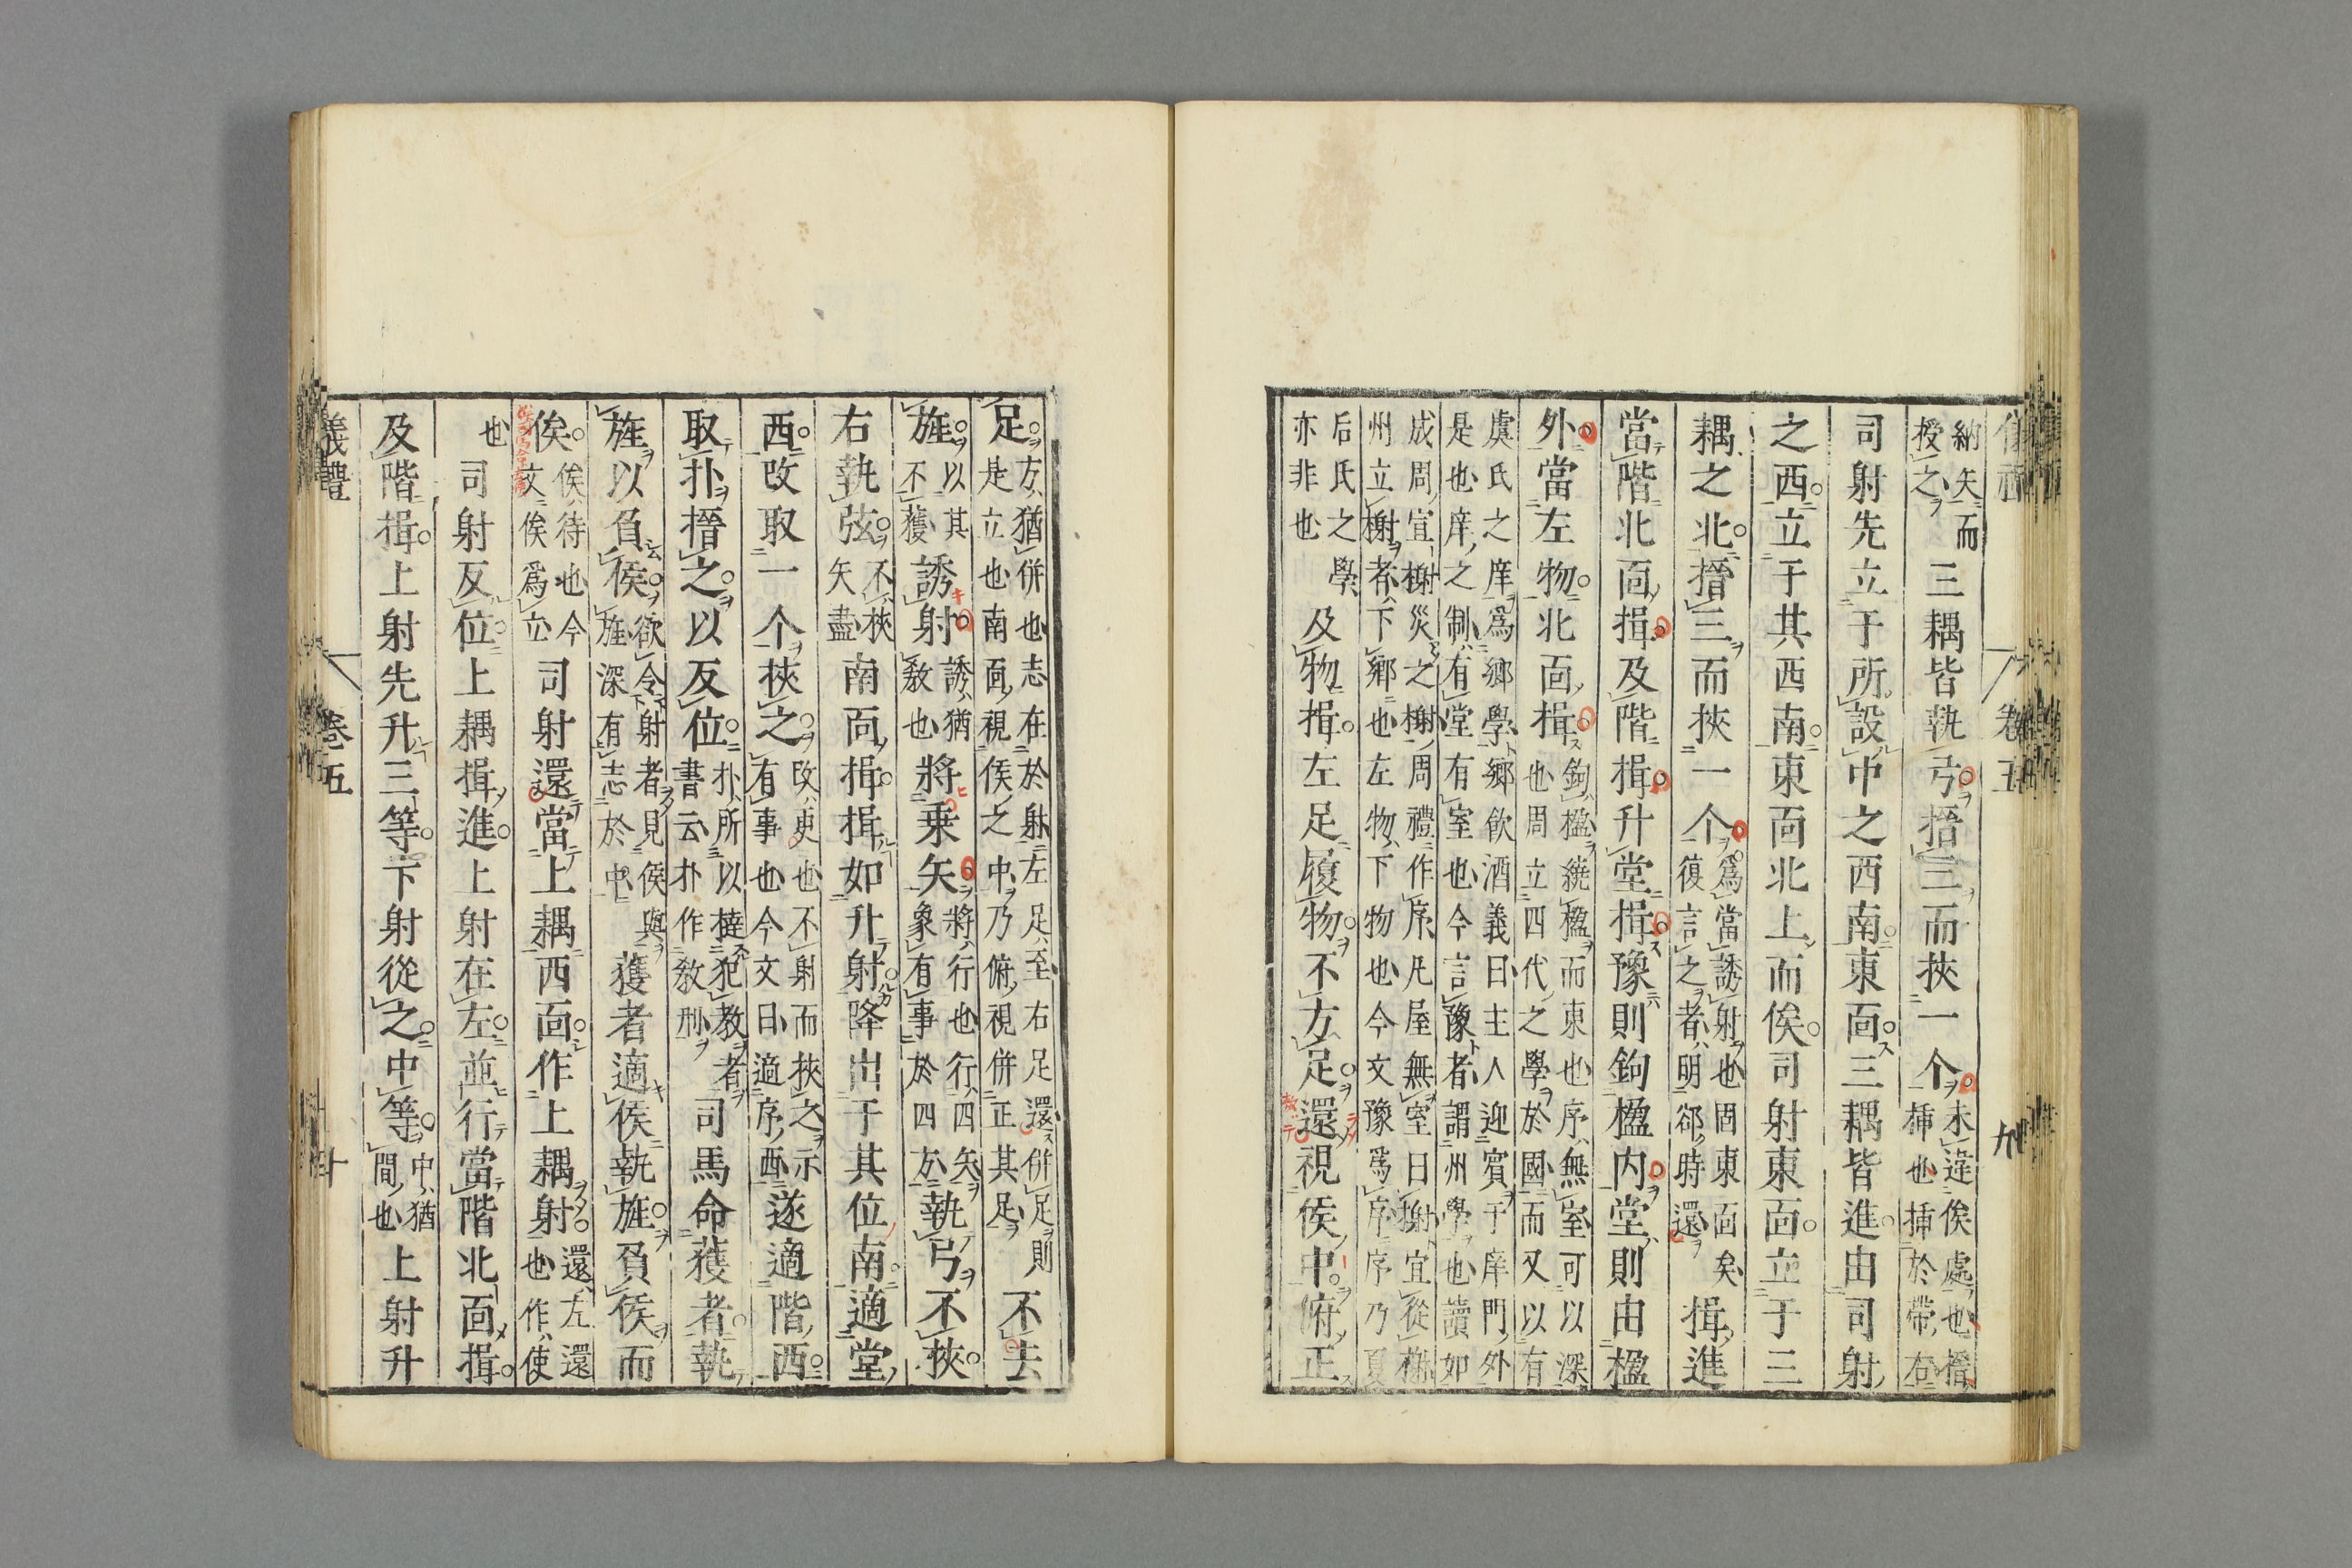 儀禮　卷五　九
納矢而
授之
三耦皆執弓搢三而挾一个
未違俟處也搢
挿也挿於帶右
司射先立于所設中之西南東面三耦皆進由司射
之西立于其西南東面北上而俟司射東面立于三
耦之北搢三而挾一个
爲當誘射也固東面矣
復言之者明郤時還
揖進
當階北面揖及階揖升堂揖豫則鉤楹内堂則由楹
外當左物北面揖
鉤楹繞楹而東也序無室可以深
也周立四代之學於國而又以有
虞氏之庠爲鄉學鄉飲酒義曰主人迎賓于庠門外
是也庠之制有堂有室也今言豫者謂州學也讀如
成周宜榭災之榭周禮作序凡屋無室曰榭宜從榭
州立榭者下鄉也左物下物也今文豫爲序序乃夏
后氏之學
亦非也
及物揖左足履物不方足還視侯中俯正
足
方猶併也志在於射左足至右足還併足則
是立也南面視侯之中乃俯視併正其足
不去
旌
以其
不獲
誘射
誘猶
教也
將乗矢
將行也行四矢
象有事於四方
執弓不挾
右執弦
不挾
矢盡
南面揖揖如升射降出于其位南適堂
西改取一个挾之
改更也不射而挾之示
有事也今文曰適序西
遂適階西
取扑搢之以反位
扑所以撻犯教者
書云扑作教刑
司馬命獲者執
旌以負侯
欲令射者見侯與
旌深有志於中
獲者適侯執旌負侯而
俟
俟待也今
文俟爲立
司射還當上耦西面作上耦射
還左還
也作使
也
司射反位上耦揖進上射在左並行當階北面揖
及階揖上射先升三等下射從之中等
中猶
間也
上射升
義禮　卷五　十